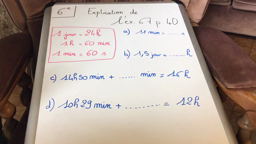 6e Explication de
l'ex 67 p 40
1 jour = 24h
1h = 60 min
1 min = 60 s
a) 11 min = ...... s
b) 1,5 jour = ...... h
c) 14h50 min + ...... min = 15h
d) 10h29 min + ......... = 12h